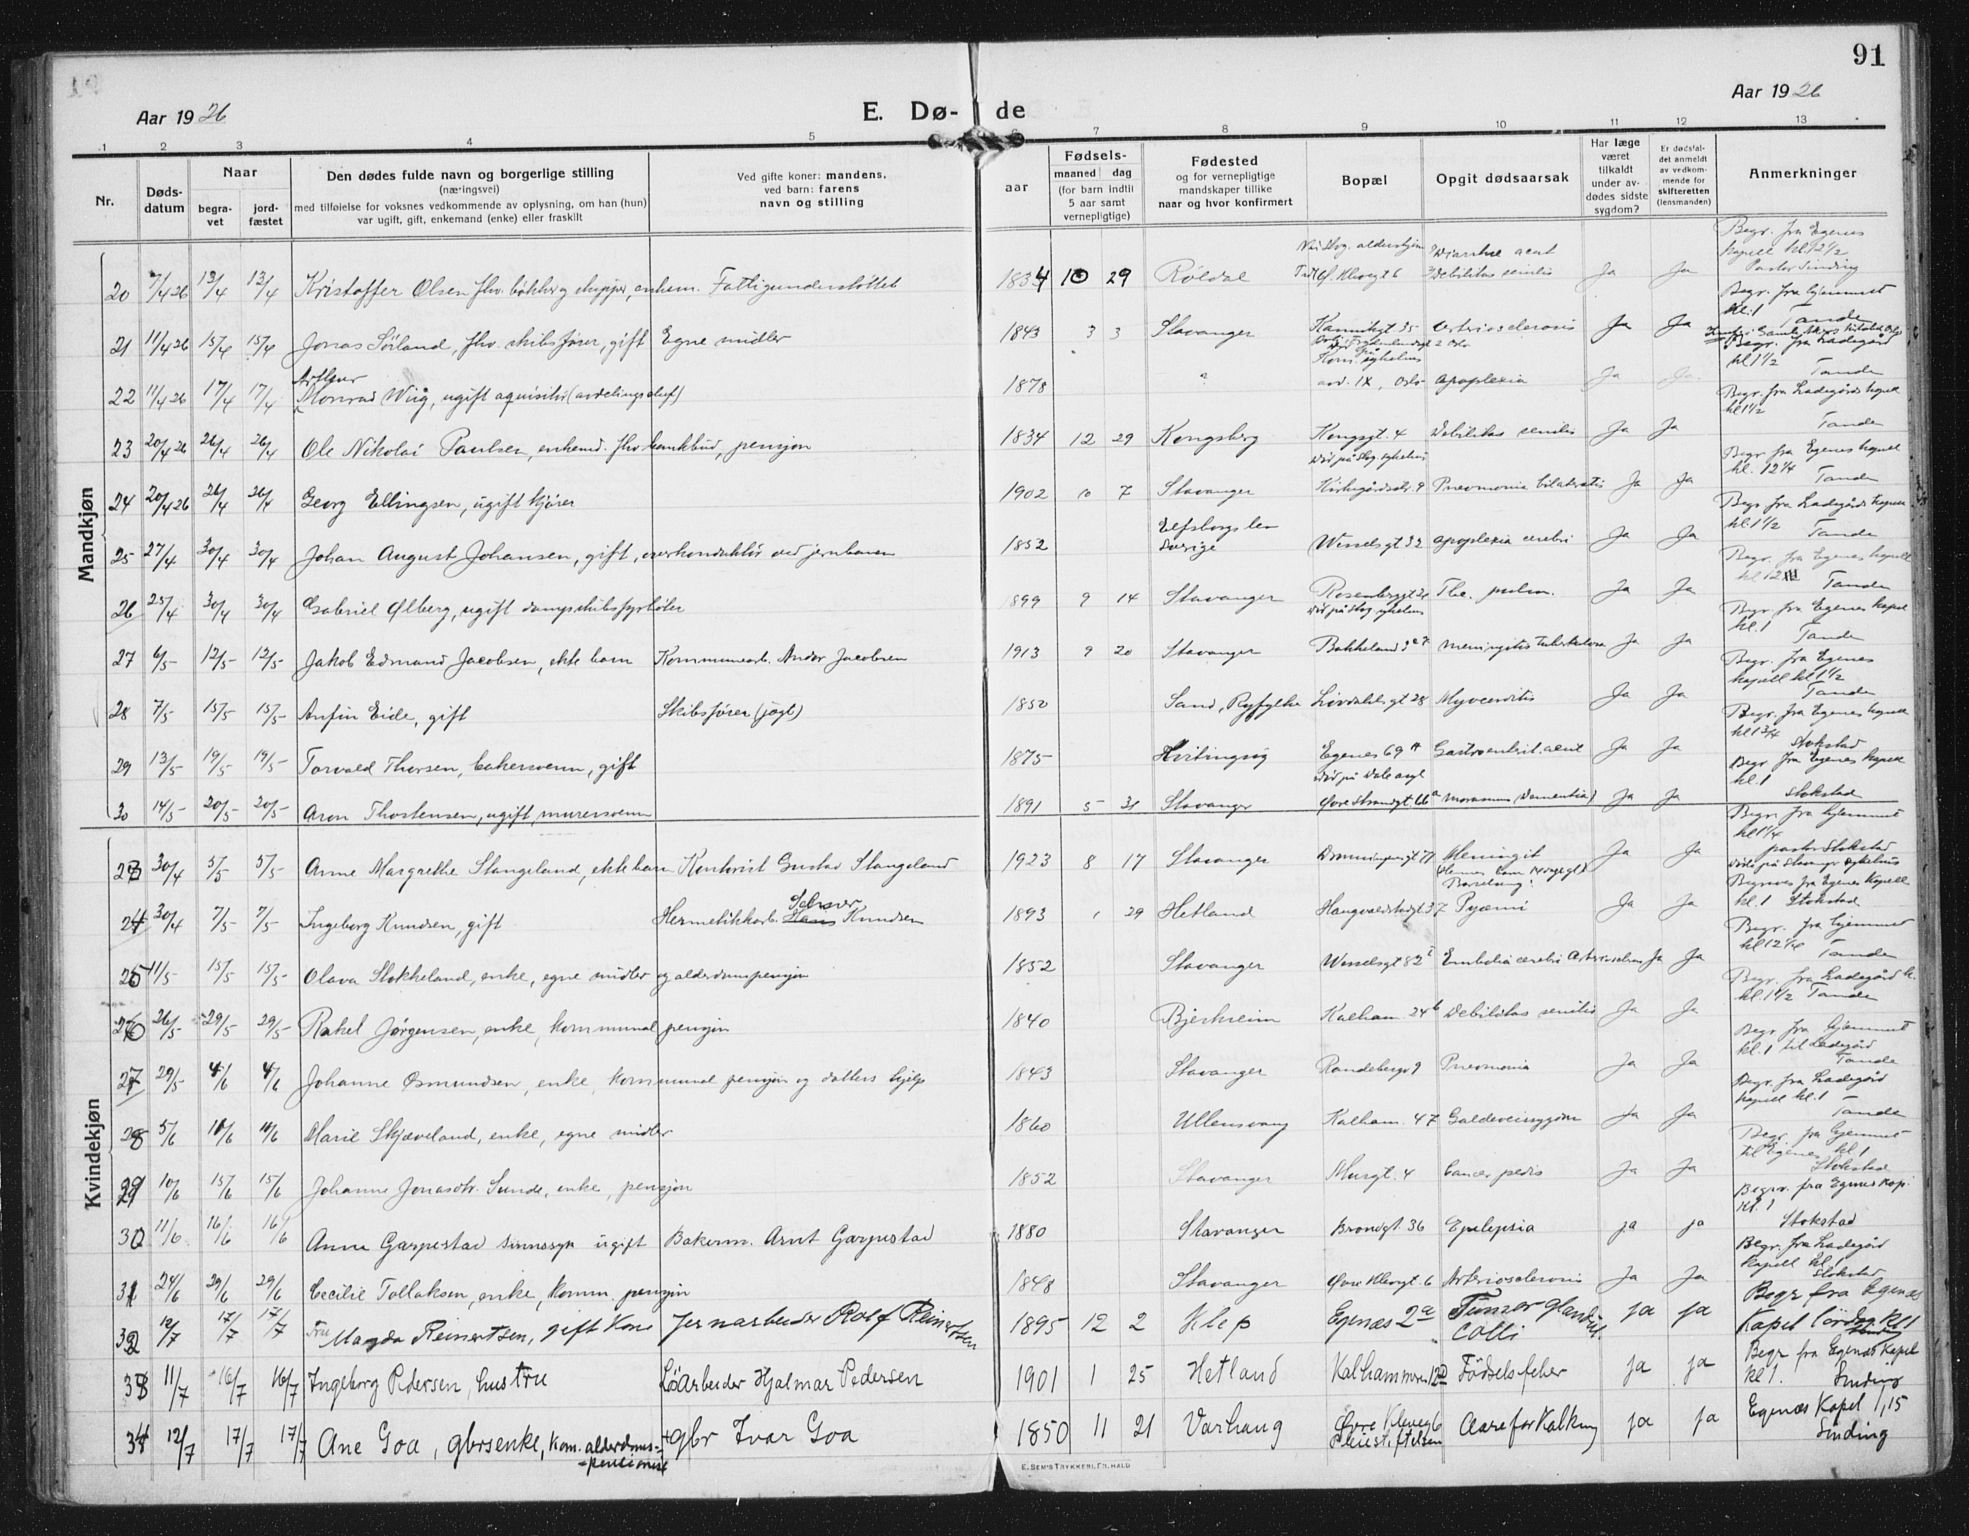 91
Aar 1926
E. Dø- de
Aar 1926
1 2 3 4 5 6 7 8 9 10 11 12 13
Nr.
Døds-datum
Naar
begra-vet
jord-fæstet
Den dødes fulde navn og borgerlige stilling
(næringsvei)
med tilføielse for voksnes vedkommende av oplysning, om han (hun)
var ugift, gift, enkemand (enke) eller fraskilt
Ved gifte koner: mandens,
ved barn: farens
navn og stilling
Fødsels-
aar
maaned dag
(for barn indtil
5 aar samt
vernepligtige)
Fødested
og for vernepligtige
mandskaper tillike
naar og hvor konfirmert
Bopæl
Opgit dødsaarsak
Har læge
været
tilkaldt
under av-
dødes sidste
sygdom?
Er dødsfal-
det anmeldt
av vedkom-
mende for
skifteretten
(lensmanden)
Anmerkninger
Mandkjøn
20 7/4 26 13/4 13/4 Kristoffer Olsen fhv. bøkker, enkem. Fattigunderstøttet 1834 10 29 Røldal Debilitas senilis Ja Ja Begr. fra Egenes kapell kl 12 1/2 Pastor Sinding
21 11/4 26 15/4 15/4 Jonas Sørland, fhv. skibsfører, gift Egne midler 1843 3 3 Stavanger Kannikgt 35 Arteriosclerosis Ja Ja Begr. fra hjemmet kl. 1 Tande
22 11/4 26 17/4 17/4 Arthur Monrad Wiig, ugift aquisitør 1878 avd. IX, Oslo Apoplexia Ja Ja Begr. fra Ladegård kl 1 1/2 Tande
23 20/4 26 26/4 26/4 Ole Nikolai Paulsen, enkemd. fhv. bankbud, pensjon 1834 12 29 Kongsberg Kongsgt. 4 Debilitas senilis Ja Ja Begr. fra Ladegårds kapell kl 1 1/2 Tande
24 20/4 26 26/4 26/4 Georg Ellingsen, ugift kjører 1902 10 7 Stavanger Kirkegårdsdr. 9 Pneumonia bilateralis Ja Ja Begr. fra Egenes kapell kl. 12 1/4 Tande
25 27/4 30/4 30/4 Johan August Johansen, gift, overkonduktør ved jernbanen 1852 Elfsborgs len Sverige Wesselsgt 32 Apoplexia cerebri Ja Ja Begr fra Ladegårds kapell kl. 1 1/2 Tande
26 25/4 30/4 30/4 Gabriel Ølberg, ugift dampskibsfyrbøter 1899 9 14 Stavanger Rosenberggt 24 Tbc. pulm. Ja Ja Begr. fra Egenes kapell Tande
27 6/5 12/5 12/5 Jakob Edmund Jacobsen, ekte barn Kommunearb. Andor Jacobsen 1913 9 20 Stavanger Bakkeland Meningitis tuberkulosa Ja Ja Begr. fra Egenes kapel kl. 1 Tande
28 7/5 15/5 15/5 Anfin Eide, gift Skibsfører (jagt) 1850 Sand, Ryfylke Løvdahlsgt 28 Myocarditis Ja Ja Begr. fra Egenes kapell kl 1 1/2 Tande
29 13/5 19/5 19/5 Torvald Thorsen, bakersvenn, gift 1875 Hvitingsøy Egenes 69 Gastroenterit. acut Ja Ja Begr. fra Egenes kapell kl 1 3/4 Stokstad
30 14/5 20/5 20/5 Aron Thorstensen, ugift, murersvenn 1891 5 31 Stavanger Øvre Strandgt 66a Marasmus (Dementia) Ja Ja Begr. fra Egenes kapell kl. 1 Stokstad
Kvindekjøn
23 30/4 5/5 5/5 Anne Margrethe Stangeland, ekte barn Kontorist Gustav Stangeland 1923 8 17 Stavanger Dronningensgt 77 Meningit Ja Ja Begr. fra hjemmet kl 1 1/4 pastor Stokstad
24 30/4 7/5 7/5 Ingeborg Knudsen, gift Hermetikkarb. Knudsen 1893 1 29 Hetland Haugvaldstadgt 37 Pyæmi Ja Ja Død på Stavanger sykehus Begraves fra Egenes kapell kl. 1 Stokstad
25 11/5 15/5 15/5 Olava Stokkeland, enke, egne midler og alderdomspensjon 1852 Stavanger Wesselsgt 82 Embolia cerebri Arteriosclerosis Ja Ja Begr. fra hjemmet kl 12 1/4 Tande
26 26/5 29/5 29/5 Rakel Jørgensen, enke, kommunal pensjon 1840 Bjerkreim Kalham. 24b Debilitas senilis Ja Ja Begr. fra Ladegård k. kl. 1 1/2 Tande
27 29/5 4/6 4/6 Johanne Osmundsen, enke, kommunal pensjon og datters hjelp 1843 Stavanger Randebergv 9 Pneumonia Ja Ja Begr. fra hjemmet kl. 1 til Ladegård Tande
28 5/6 10/6 10/6 Marie Skjæveland, enke, egne midler 1860 Ullensvang Kalham. 47 Galdeveissygdom Ja Ja Begr. fra Ladegård kapell kl. 1 Tande
29 10/6 15/6 15/6 Johanne Jonasdtr. Sunde, enke, pensjon 1852 Stavanger Murgt. 4 Cancer pedis Ja Ja Begr. fra hjemmet til Egenes kl 1 Stokstad
30 11/6 16/6 16/6 Anna Garpestad sinnssyk ugift Bakerm. Arnt Garpestad 1880 Stavanger Brondgt. 36 Epilepsia ja ja Begrv. fra Egenes kap. kl. 1 Stokstad
31 24/6 29/6 29/6 Cecilie Tollaksen, enke, komm. pensjon 1848 Stavanger Øvre Klevgt. 6 Arteriosclerosis Ja Ja Begr. fra Ladegård kapell kl. 1 Stokstad
32 12/7 17/7 17/7 Fru Magda Reinertsen, gift Kone Jernarbeider Rolf Reinertsen 1895 12 2 Klep Egenæs 2a Tumor glandul. Colli ja ja Begr fra Egenæs Kapel lördag kl 1 Sinding
33 11/7 16/7 16/7 Ingeborg Pedersen, hustru Løsarbeider Hjalmar Pedersen 1901 1 25 Hetland Kalhammeren 12 Födselsfeber ja ja Begr fra Egenæs Kapel kl 1. Sinding
34 12/7 17/7 17/7 Ane Goa, gbrsenke, kom. alderdoms-pensionist gbr Ivar Goa 1850 11 21 Varhaug Øvre Klevegt 6 Pleiestiftelsen Aareforkalkning ja ja Egenæs Kapel 1,15 Sinding
E. SEM'S TRYKKERI, FR. HALD